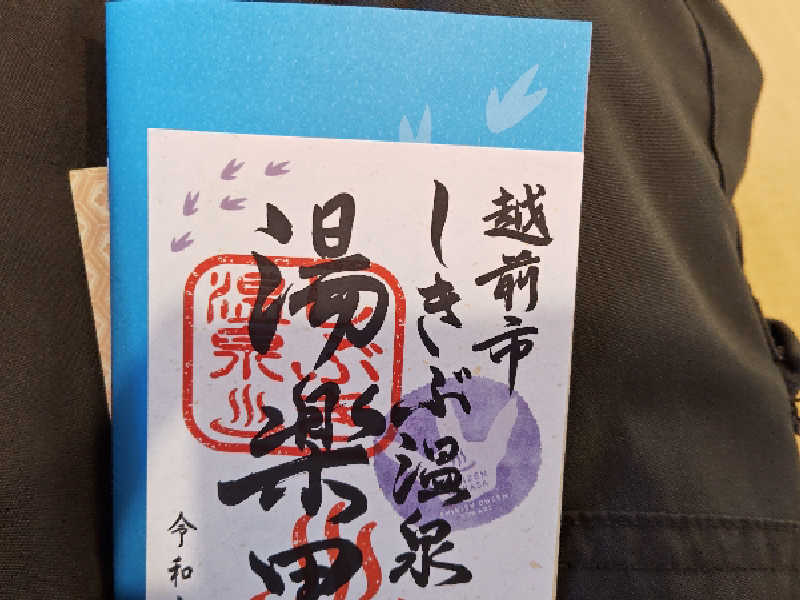 越前市
しきぶ温泉
湯楽里
令和
しきぶ
温泉